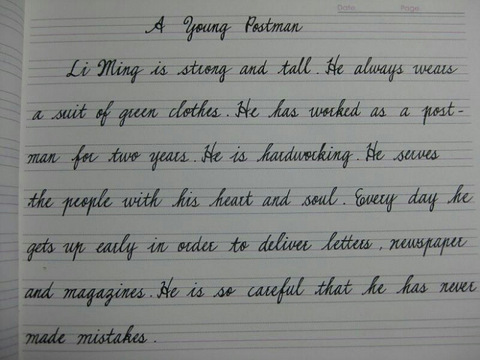 Date Page
A Young Postman
Li Ming is strong and tall. He always wears
a suit of green clothes. He has worked as a post-
man for two years. He is hardworking. He serves
the people with his heart and soul. Every day he
gets up early in order to deliver letters, newspaper
and magazines. He is so careful that he has never
made mistakes.